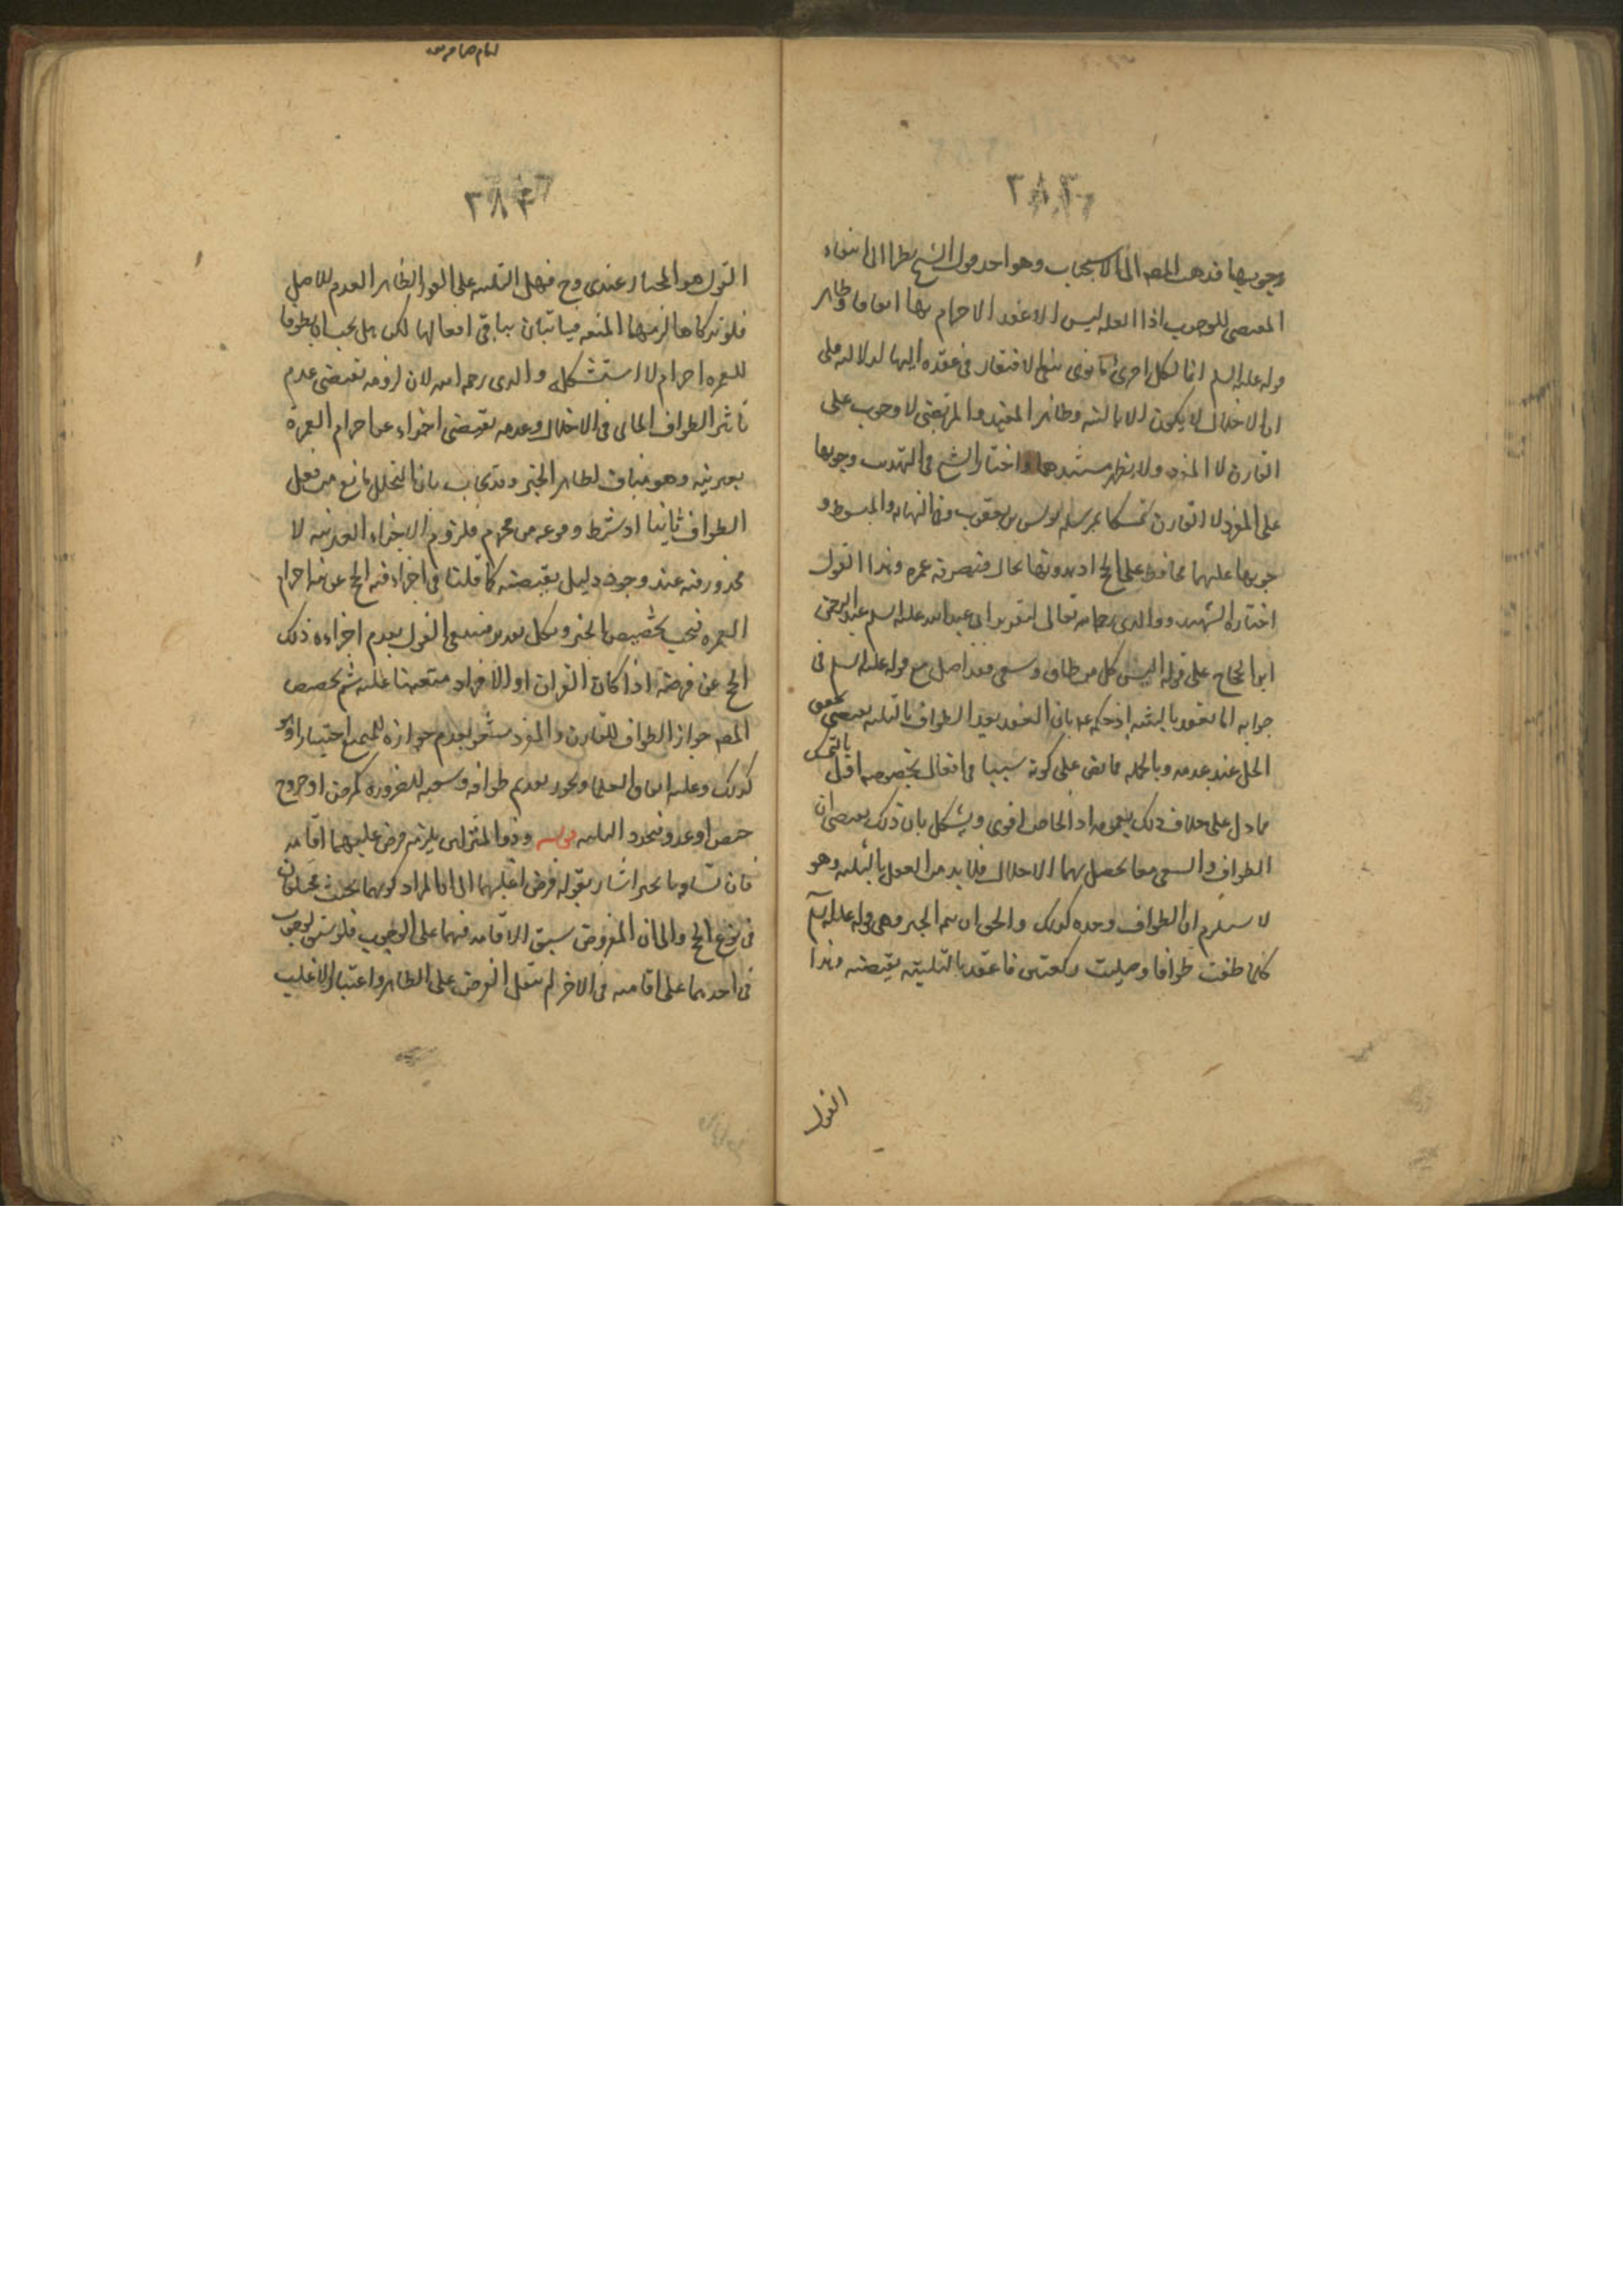 ٢٨٢
وجوبها فذهب المصـ الى الاستحباب وهو احد قول الشيخ نظرا الى انتفاء
المقتضى للوجوب اذا العله ليس الا عقد الاحرام بها اتفاقا وظاهر
قوله عليه السلم انما لكل امرئ ما نوى ينفى الافتقار فى عقده اليها لدلالته على
ان الاحلال لا يكون الا بالنيه وظاهر المفيد والمرتضى لا وجوب على
القارن لا المفرد ولا يظهر مستندهما واختار الشيخ فى التهذيب وجوبها
على المفرد لا القارن تمسكا بمرسله يونس بن يعقوب وفى النهايه والمبسوط و
جوبها عليهما محافظه على الحج اذ بدونها يحل فتصير حجته عمره وهذا القول
اختاره الشهيد ووالدى رحمه الله تعالى لتقرير ابى عبد الله عليه السلم عبد الرحمن
ابن الحجاج على قوله اليس كل من طاف وسعى فقد احل مع قوله عليه السلم فى
جوابه انما يعقد بالتلبيه اذ حكمه بان العقد بعد الطواف بالتلبيه يقتضى تحقق
الحل عند عدمه وبالجمله فالنص على كونه سببا فى افعال بخصوصه اقل بالتمسك
مما دل على خلاف ذلك بعمومه اذ الخاص اقوى ويشكل بان ذلك يقتضى ان
الطواف والسعى معا يحصل بهما الاحلال فلا بد من العمل بالتلبيه وهو
لا يستلزم ان الطواف وحده كذلك والحق ان تتمه الخبر وهى قوله عليه السلم
كلما طفت طوافا وصليت ركعتين فاعقد بالتلبيه يقتضيه وهذا
القول
٢٨٣
القول هو المختار عندى وح فهل التلبيه على الفور الظاهر العدم للاصل
فلو تركاها لزمهما المتعه فياتيان بباقى افعالها لكن هل يجب ان يطوفا
للعمره احرام لا استشكله والدى رحمه الله لان لزومه تقتضى عدم
تاثير الطواف الحالى فى الاحلال وعدمه يقتضى اجزاء عن احرام العمرة
بغير نيه وهو مناف لظاهر الخبر وقد يجاب بان التحلل مانع من فعل
الطواف ثانيا اذ شرط وقوعه من محرم فلزوم الاجزاء بغير نيه لا
محذور فيه عند وجود دليل يقتضيه كما قلنا فى اجزاء فيه الحج عن نيه احرام
العمره فيجب تخصيص الخبر وبكل تقدير فينبغى القول بعدم اجزاءه ذلك
الحج عن فرضه اذا كان القران او الافراد متعينا عليه ثم تخصيص
المصـ جواز الطواف للقارن والمفرد يشعر بعدم جوازه للمتمتع اختيارا وهو
كذلك وعليه اتفاق العلما ويجوز تقديم طوافه وسعيه للضروره كمرض او خروج
حيض او عدو فيجدد التلبيه وذو المنزلين يلزمه فرض عليهما اقامه
فان تساويا تخير اشار بقوله فرض اغلبهما الى ان المراد كونهما بحيث يختلفان
فى نوع الحج والى ان المفروض سبق الاقامه فيهما على الوجوب فلو سبق الوجوب
فى احدهما على اقامته فى الاخر لم ينتقل الفرض على الظاهر واعتبار الاغلب